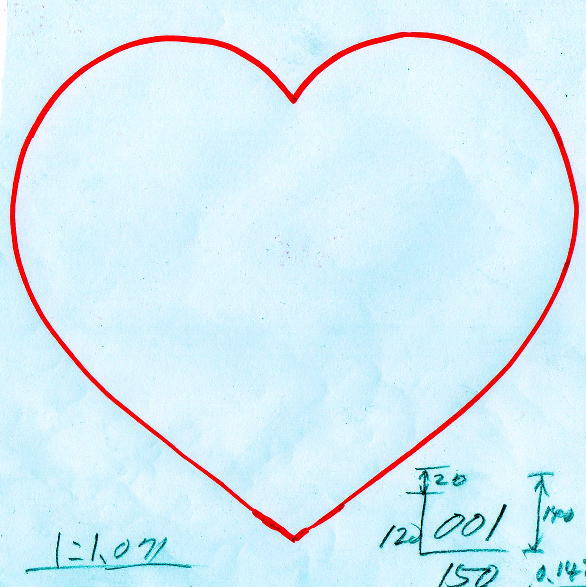 1=1.071
20
120 001 140
150 0.14